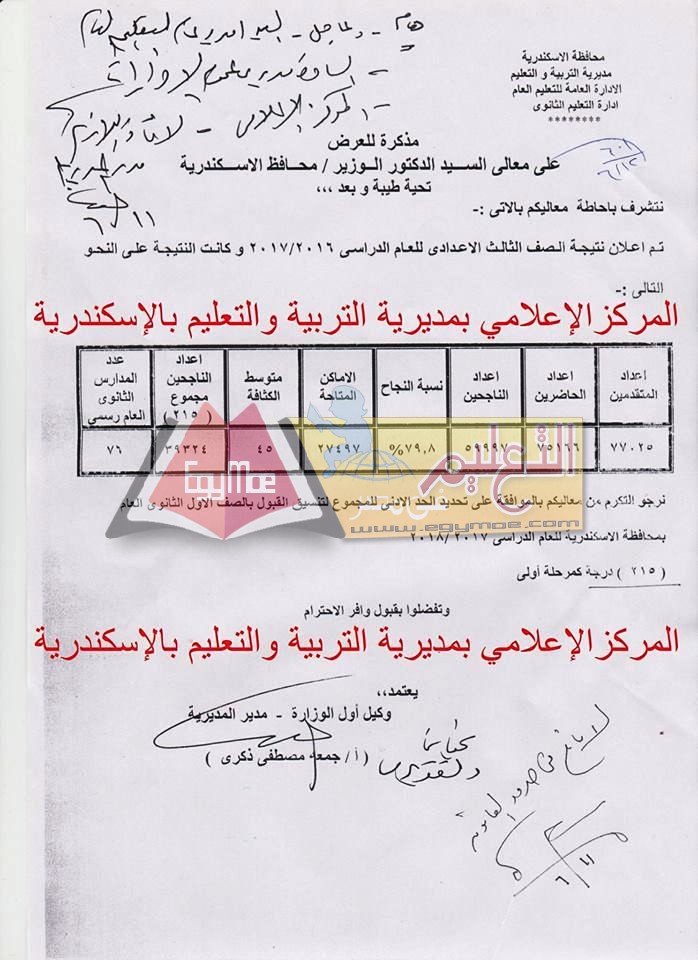 محافظة الاسكندرية
مديرية التربية و التعليم
الادارة العامة للتعليم العام
ادارة التعليم الثانوى
********
مذكرة للعرض
على معالى السيد الدكتور الـوزير / محـافظ الاسـكندرية
تحية طيبة و بعد ،،،
نتشرف باحاطة معاليكم بالاتى :-
تـم اعـلان نتيجـة الـصف الثالـث الاعـدادى للعـام الدراسـى ٢٠١٧/٢٠١٦ و كانـت النتيجـة علـى النحـو
التالى :-
المركز الإعلامي بمديرية التربية والتعليم بالإسكندرية
اعداد المتقدمين اعداد الحاضرين اعداد الناجحين نسبة النجاح الاماكن المتاحة متوسط الكثافة اعداد الناجحين مجموع ( ٢١٥ ) عدد المدارس الثانوى العام رسمى
٧٧٠٢٥ ٧٥١٦٦ ٥٩٩٩٧ ٧٩,٨% ٢٧٤٩٧ ٤٥ ٣٩٣٢٤ ٧٦
التعليم
فى مصر
EgyMoe
www.egymoe.com
نرجو التكرم من معاليكم بالموافقة على تحديد الحد الادنى للمجموع لتنسيق القبول بالصف الاول الثانوى العام
بمحافظة الاسكندرية للعام الدراسى ٢٠١٧/ ٢٠١٨
( ٢١٥ ) درجة كمرحلة أولى
وتفضلوا بقبول وافر الاحترام
المركز الإعلامي بمديرية التربية والتعليم بالإسكندرية
يعتمد،،
وكيل أول الوزارة - مدير المديرية
( أ/ جمعه مصطفى ذكرى )
لا مانع فى حدود القانون